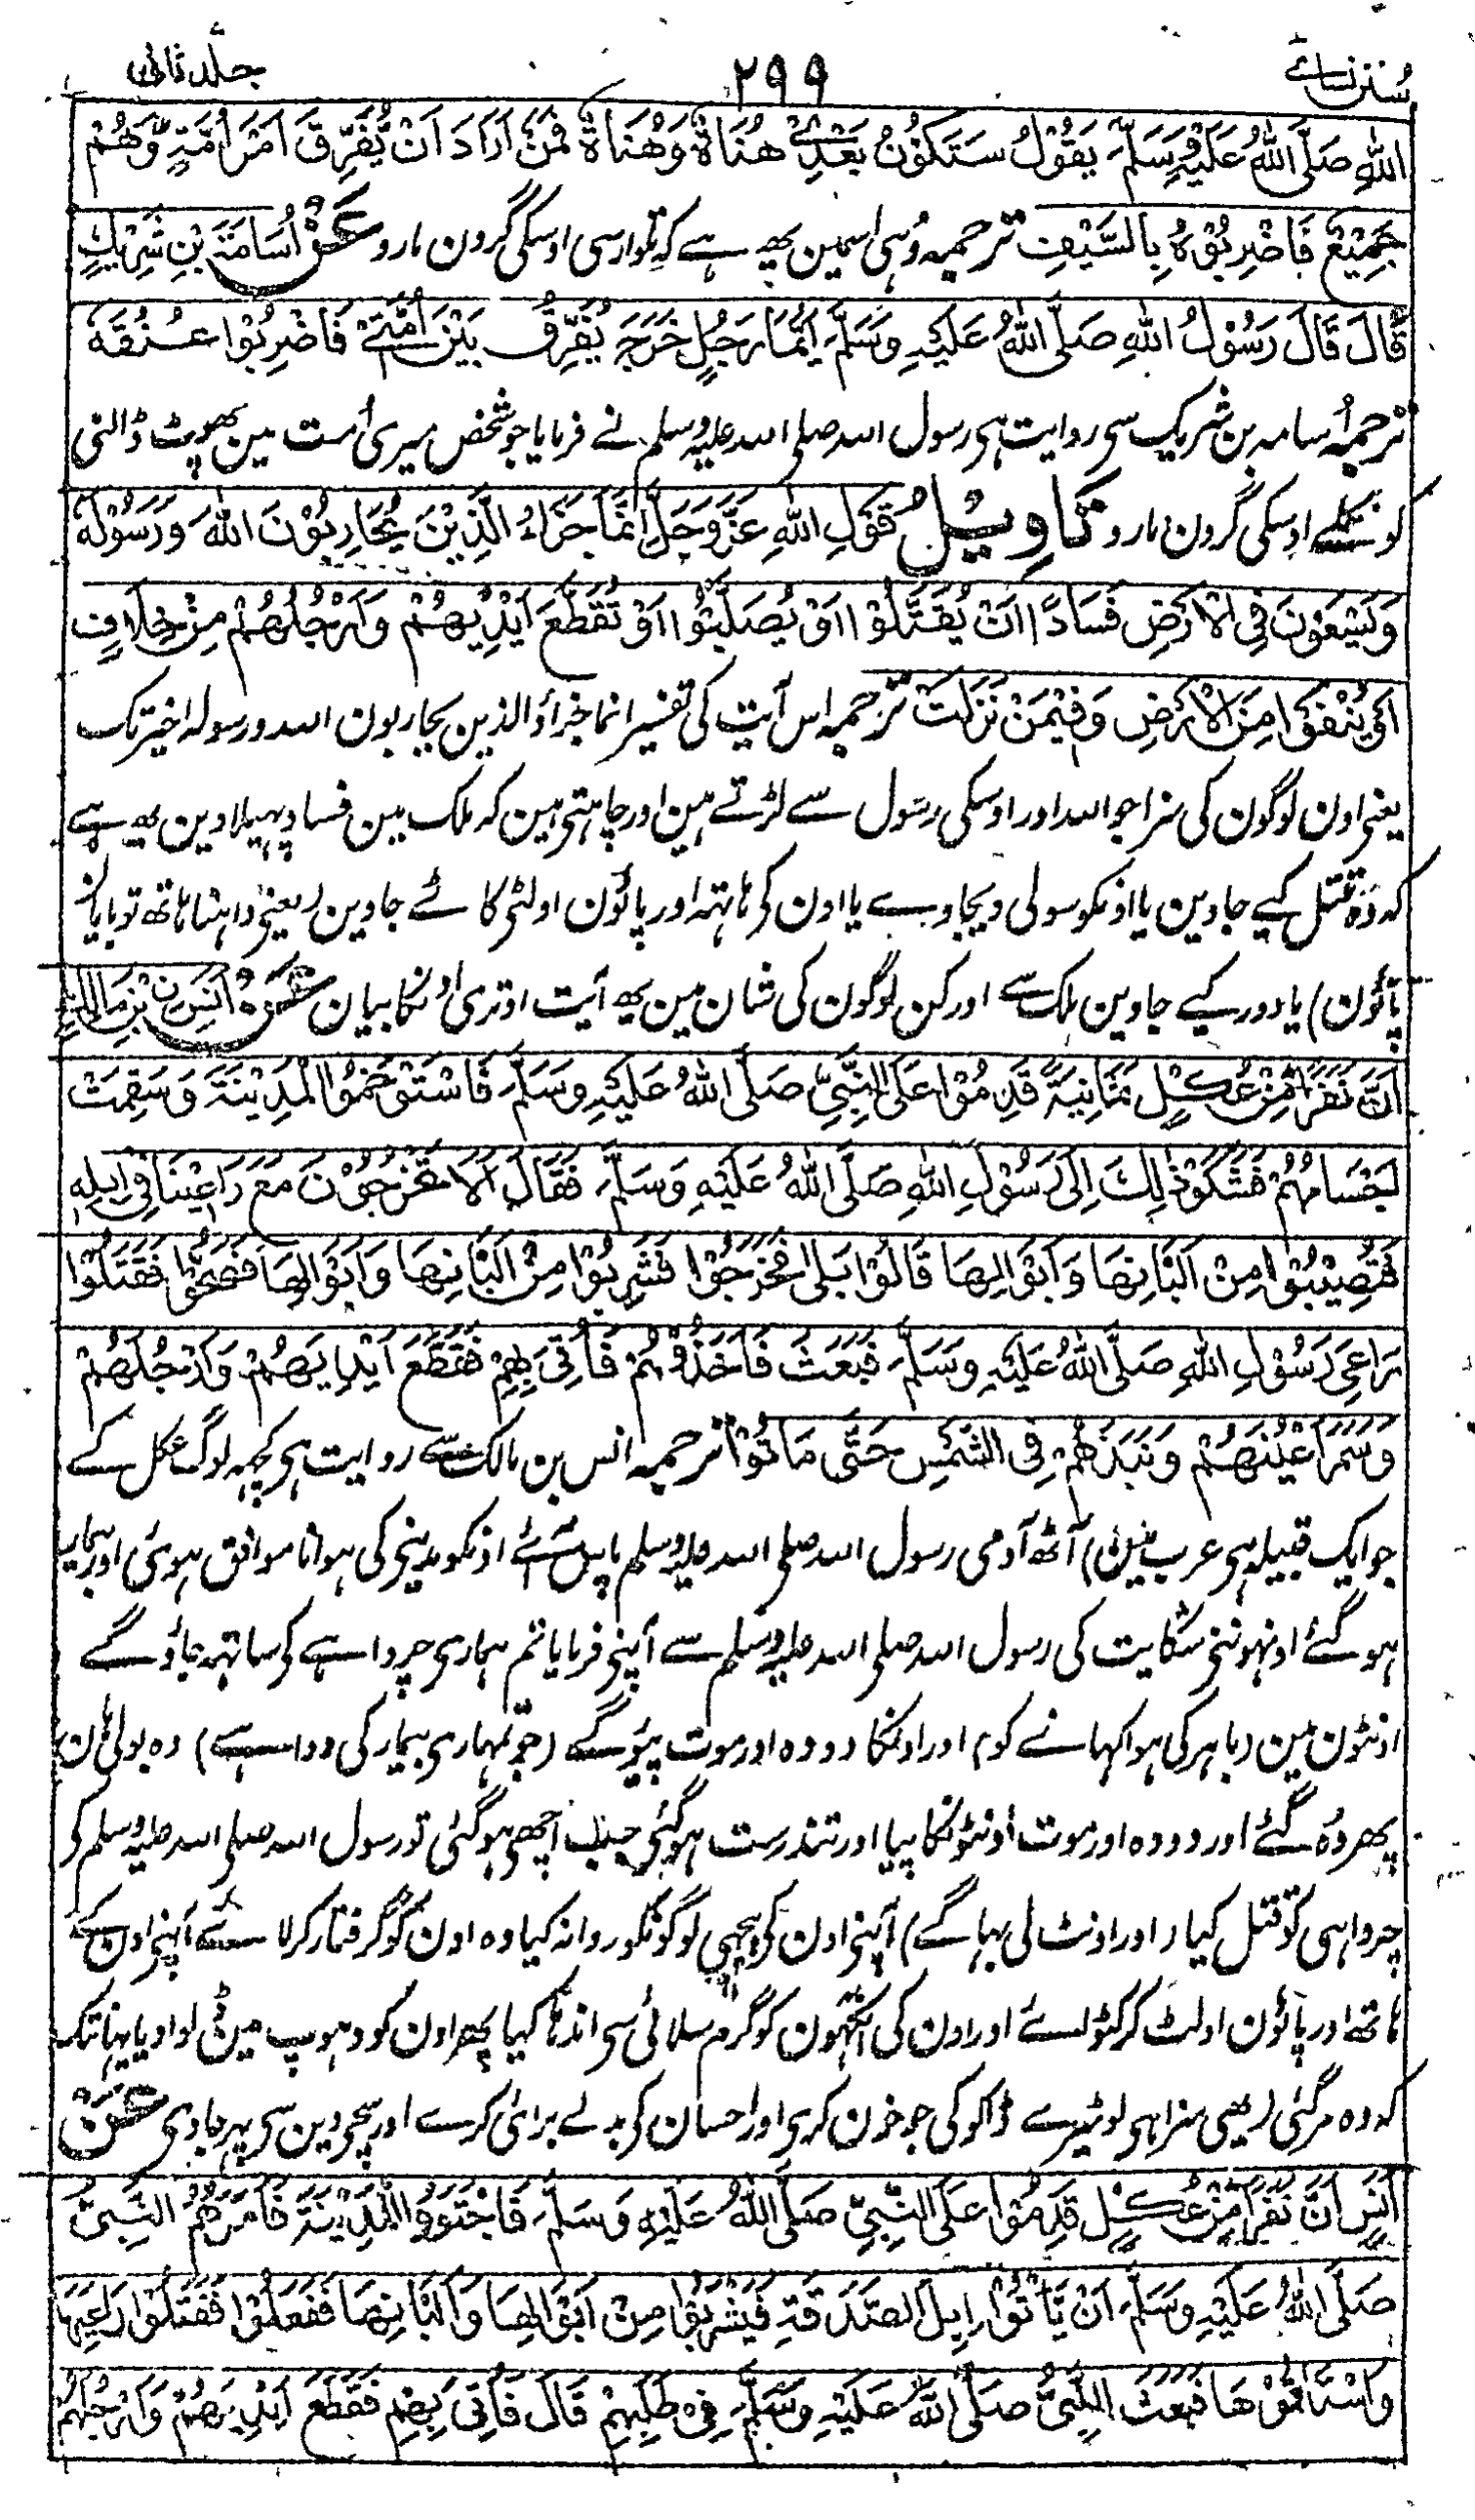 سنن نسائے ۲۹۹ جلد ثانی
اللّٰهِ صَلَّى اللّٰهُ عَلَيْهِ وَسَلَّمَ يَقُوْلُ سَتَكُوْنُ بَعْدِيْ هُنَاةٌ وَهُنَاةٌ فَمَنْ اَرَادَ اَنْ يُّفَرِّقَ اَمْرَ اُمَّةٍ وَّهُمْ
جَمِيْعٌ فَاضْرِبُوْهُ بِالسَّيْفِ ترجمہ وہی اسمین یہ ہے کہ تلوارسی اوسکی گردن مارو عَنْ اُسَامَةَ بْنِ شَرِيْكٍ
قَالَ قَالَ رَسُوْلُ اللّٰهِ صَلَّى اللّٰهُ عَلَيْهِ وَسَلَّمَ اَيُّمَا رَجُلٍ خَرَجَ يُفَرِّقُ بَيْنَ اُمَّتِيْ فَاضْرِبُوْا عُنُقَهٗ
ترجمہ اُسامہ بن شریک سی روایت ہی رسول اللہ صلی اللہ علیہ وسلم نے فرمایا جو شخص میری اُمت مین پھوٹ ڈالنی
کو نکلے اوسکی گردن مارو تَاوِيْلُ قَوْلِ اللّٰهِ عَزَّوَجَلَّ اِنَّمَا جَزَاءُ الَّذِيْنَ يُحَارِبُوْنَ اللّٰهَ وَرَسُوْلَهٗ
وَيَسْعَوْنَ فِى الْاَرْضِ فَسَادًا اَنْ يُّقَتَّلُوْا اَوْ يُصَلَّبُوْا اَوْ تُقَطَّعَ اَيْدِيْهِمْ وَاَرْجُلُهُمْ مِّنْ خِلَافٍ
اَوْ يُنْفَوْا مِنَ الْاَرْضِ وَفِيْمَنْ نَزَلَتْ ترجمہ اس آیت کی تفسیر انما جزاؤ الذین یحاربون اللہ ورسولہ اخیر تک
یعنی اون لوگون کی سزا جو اللہ اور اوسکی رسول سے لڑتے ہین اور چاہتی ہین کہ ملک مین فساد پھیلا دین یہ ہے
کہ وہ قتل کیے جاوین یا اونکو سولی دیجاوے یا اون کی ہاتھ اور پاؤن اولٹی کاٹے جاوین (یعنی داہنا ہاتھ تو بایان
پاؤن) یا دور کیے جاوین ملک سے اور کن لوگون کی شان مین یہ آیت اوتری اونکا بیان عَنْ اَنَسِ بْنِ مَالِكٍ
اَنَّ نَفَرًا مِّنْ عُكْلٍ ثَمَانِيَةً قَدِمُوْا عَلَى النَّبِيِّ صَلَّى اللّٰهُ عَلَيْهِ وَسَلَّمَ فَاسْتَوْخَمُوا الْمَدِيْنَةَ وَسَقِمَتْ
اَجْسَامُهُمْ فَشَكَوْا ذٰلِكَ اِلٰى رَسُوْلِ اللّٰهِ صَلَّى اللّٰهُ عَلَيْهِ وَسَلَّمَ فَقَالَ اَلَا تَخْرُجُوْنَ مَعَ رَاعِيْنَا فِيْ اِبِلِهٖ
فَتُصِيْبُوْا مِنْ اَلْبَانِهَا وَاَبْوَالِهَا قَالُوْا بَلٰى فَخَرَجُوْا فَشَرِبُوْا مِنْ اَلْبَانِهَا وَاَبْوَالِهَا فَصَحُّوْا فَقَتَلُوْا
رَاعِيَ رَسُوْلِ اللّٰهِ صَلَّى اللّٰهُ عَلَيْهِ وَسَلَّمَ فَبَعَثَ فَاَخَذُوْهُمْ فَاُتِيَ بِهِمْ فَقَطَّعَ اَيْدِيَهُمْ وَاَرْجُلَهُمْ
وَسَمَّرَ اَعْيُنَهُمْ وَنَبَذَهُمْ فِى الشَّمْسِ حَتّٰى مَاتُوْا ترجمہ انس بن مالک سے روایت ہی کچھ لوگ عکل کے
جو ایک قبیلہ ہی عرب مین) آٹھ آدمی رسول اللہ صلی اللہ علیہ وسلم پاس آئے اونکو مدینی کی ہوا نا موافق ہوئی اور بیمار
ہو گئے اونہونی شکایت کی رسول اللہ صلی اللہ علیہ وسلم سے آپنی فرمایا تم ہماری چرواہے کی ساتھ جاؤ گے
اونٹون مین (باہر کی ہوا کھانے کو) اور اونکا دودہ اور موت پیو گے (جو تمہاری بیمار کی دوا ہے) وہ بولی ہان
پھر وہ گئے اور دودہ اور موت اونٹونکا پیا اور تندرست ہو گئی جب اچھی ہو گئی تو رسول اللہ صلی اللہ علیہ وسلم کی
چرواہی کو قتل کیا (اور اونٹ لی بہاگے) آپنی اون کی پیچھی لوگونکو روانہ کیا وہ اون کو گرفتار کر لائے آپنی اون کے
ہاتھ اور پاؤن اولٹ کر کٹوائے اور اون کی آنکھون کو گرم سلائی سی اندھا کیا پھر اون کو دہوپ مین ڈلوا دیا یہانتک
کہ وہ مر گئی (یہی سزا ہی لوٹیرے ڈاکو کی جو خون کری اور احسان کی بدلے برائی کرے اور سچی دین سی پہر جاوی عَنْ
اَنَسٍ اَنَّ نَفَرًا مِّنْ عُكْلٍ قَدِمُوْا عَلَى النَّبِيِّ صَلَّى اللّٰهُ عَلَيْهِ وَسَلَّمَ فَاجْتَوَوُا الْمَدِيْنَةَ فَاَمَرَهُمُ النَّبِيُّ
صَلَّى اللّٰهُ عَلَيْهِ وَسَلَّمَ اَنْ يَّاْتُوْا اِبِلَ الصَّدَقَةِ فَيَشْرَبُوْا مِنْ اَبْوَالِهَا وَاَلْبَانِهَا فَفَعَلُوْا فَقَتَلُوْا رَاعِيَهَا
وَاسْتَاقُوْهَا فَبَعَثَ النَّبِيُّ صَلَّى اللّٰهُ عَلَيْهِ وَسَلَّمَ فِيْ طَلَبِهِمْ قَالَ فَاُتِيَ بِهِمْ فَقَطَّعَ اَيْدِيَهُمْ وَاَرْجُلَهُمْ